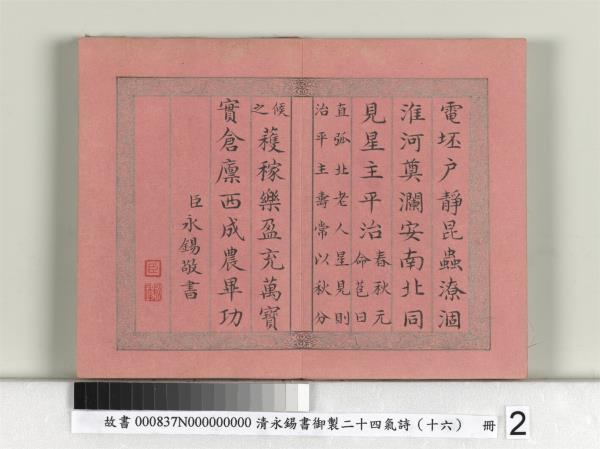 電坯户靜昆蟲潦涸
淮河奠瀾安南北同
見星主平治春秋元
命苞曰
直弧北老人星見則
治平主壽常以秋分
候
之
穫稼樂盈充萬寶
實倉廩西成農畢功
臣永錫敬書
故書 000837N000000000 清永錫書御製二十四氣詩（十六） 冊 2